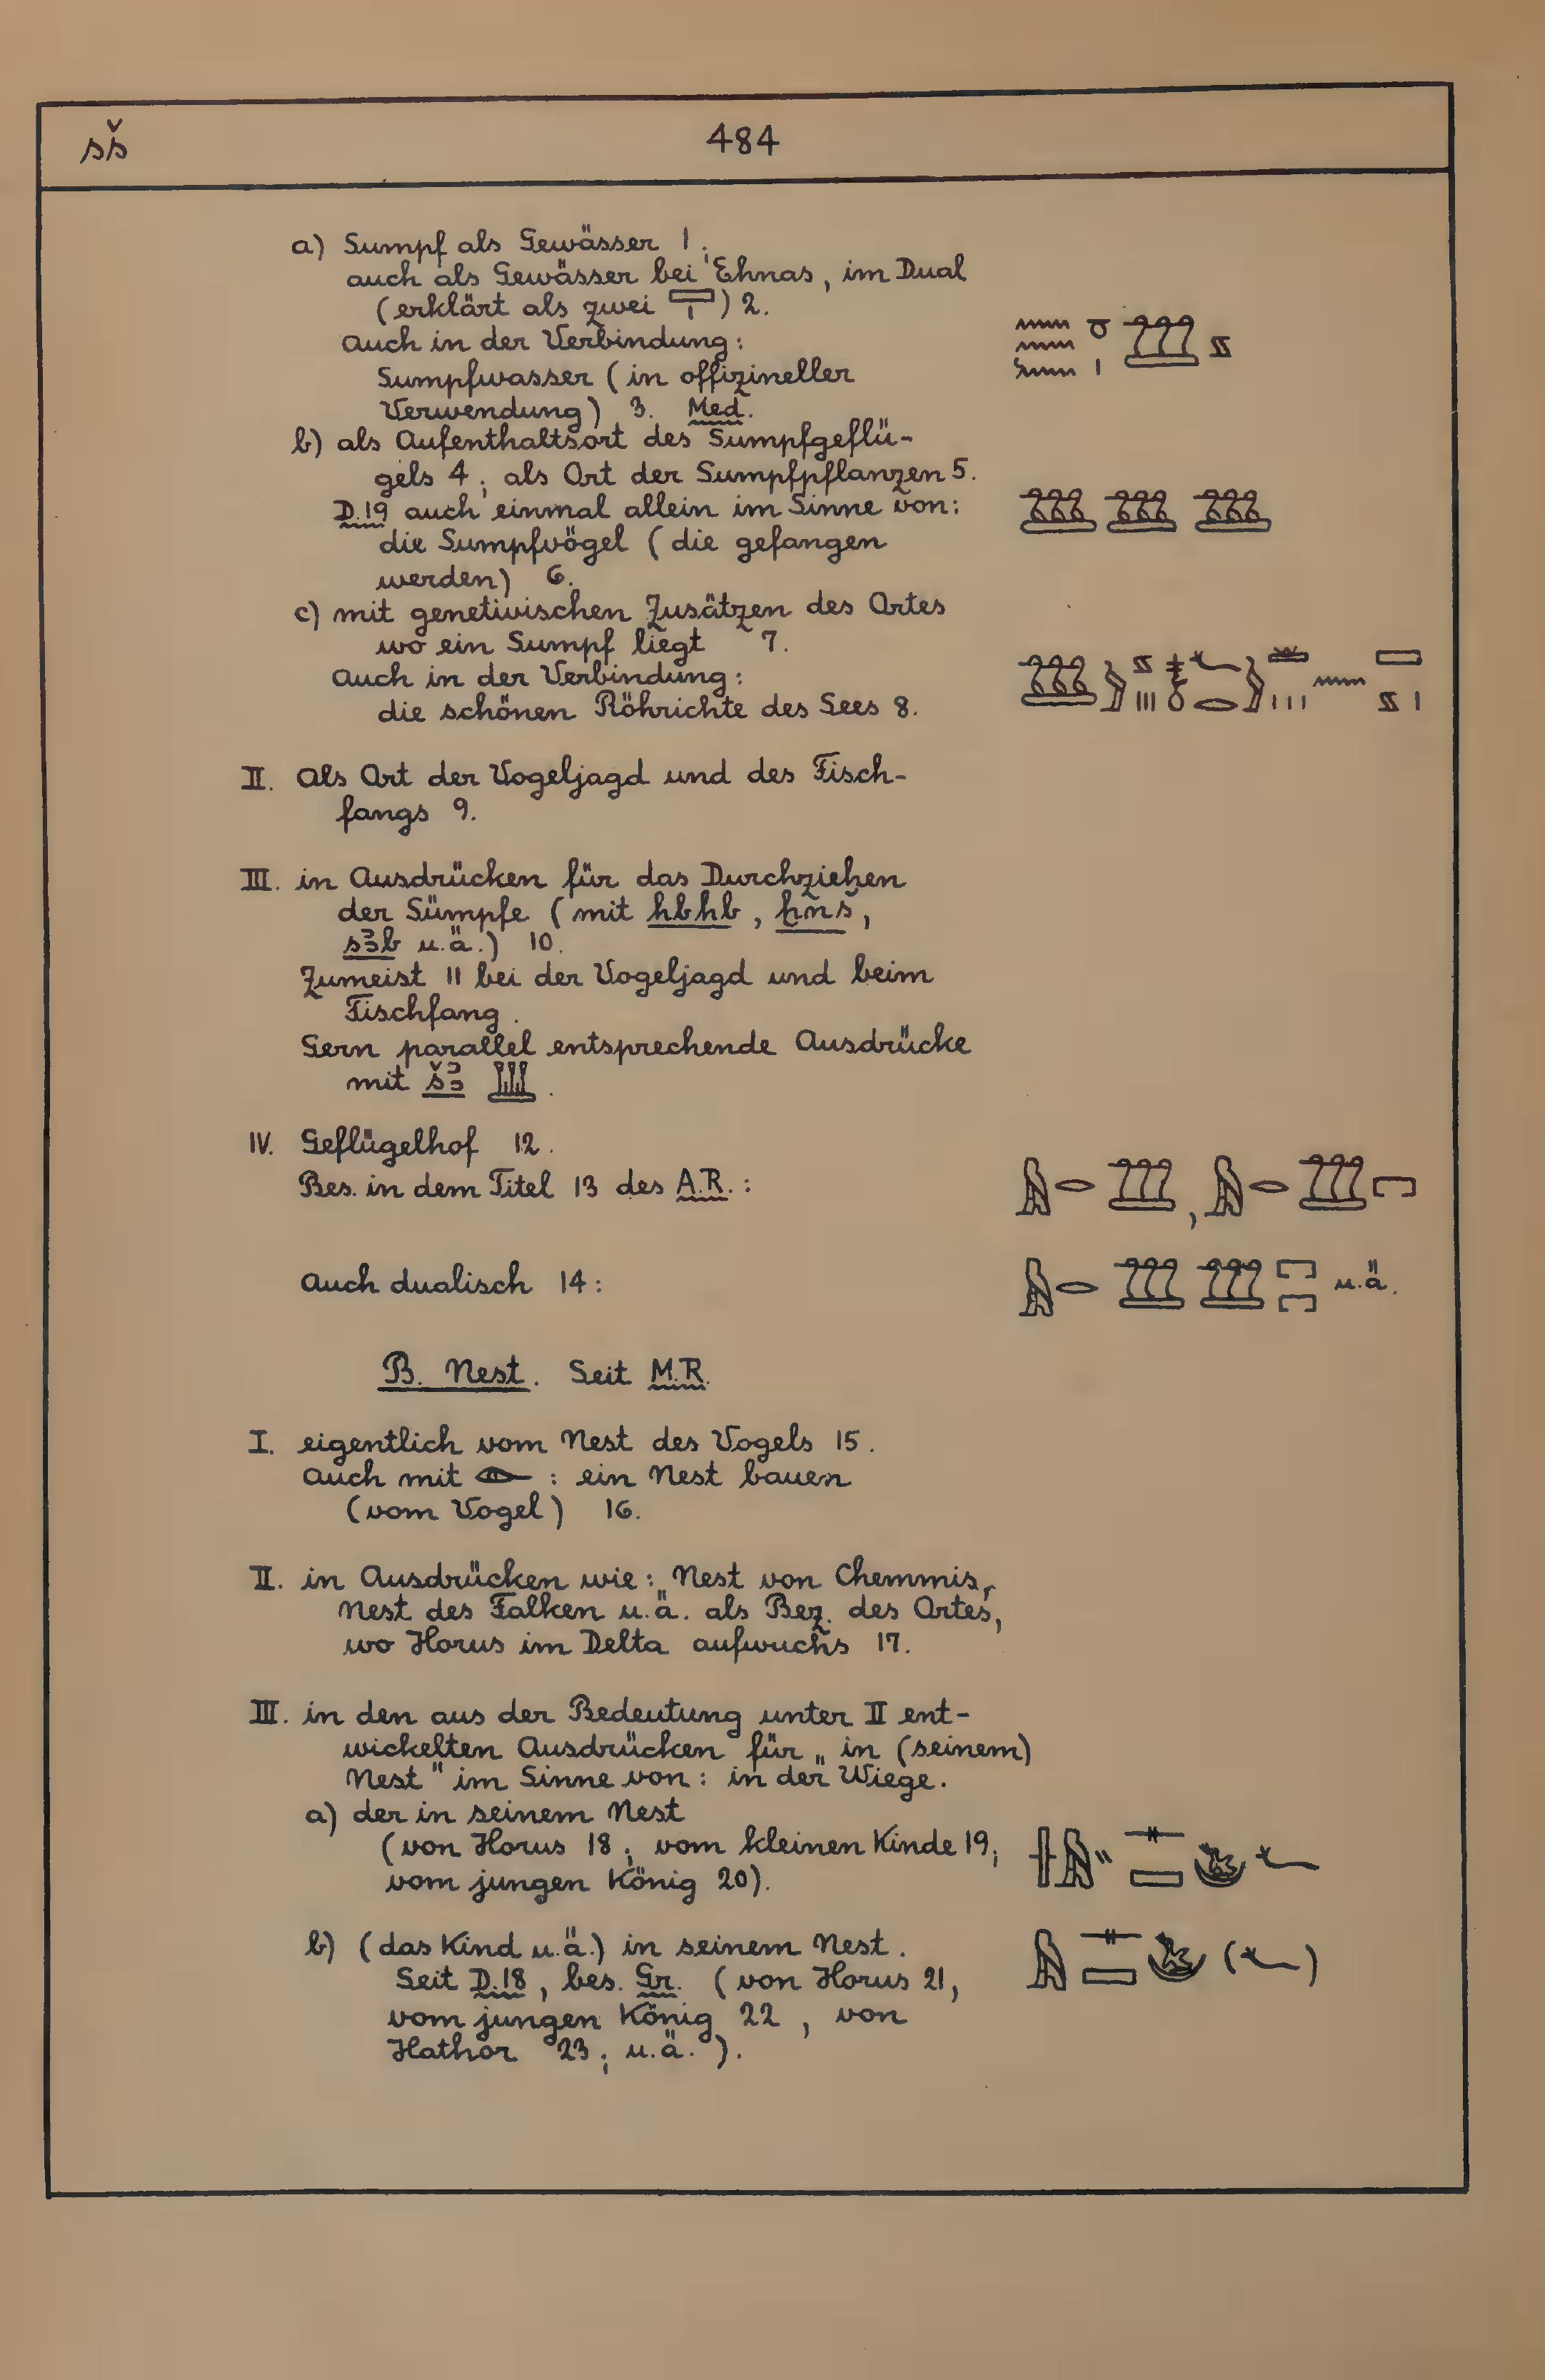 sš 484
a) Sumpf als Gewässer 1;
auch als Gewässer bei Ehnas, im Dual
(erklärt als zwei 𓈅) 2.
Auch in der Verbindung:
Sumpfwasser (in offizineller
Verwendung) 3. Med.
b) als Aufenthaltsort des Sumpfgeflü-
gels 4; als Ort der Sumpfpflanzen 5.
D.19 auch einmal allein im Sinne von:
die Sumpfvögel (die gefangen
werden) 6.
c) mit genetivischen Zusätzen des Ortes
wo ein Sumpf liegt 7.
Auch in der Verbindung:
die schönen Röhrichte des Sees 8.
II. Als Ort der Vogeljagd und des Fisch-
fangs 9.
III. in Ausdrücken für das Durchziehen
der Sümpfe (mit hbhb, ḫnš,
sꜣb u.ä.) 10.
Zumeist 11 bei der Vogeljagd und beim
Fischfang.
Gern parallel entsprechende Ausdrücke
mit šꜣ 𓇷.
IV. Geflügelhof 12.
Bes. in dem Titel 13 des A.R.:
Auch dualisch 14: u.ä.
B. Nest. Seit M.R.
I. eigentlich vom Nest des Vogels 15.
Auch mit 𓁹 : ein Nest bauen
(vom Vogel) 16.
II. in Ausdrücken wie: „Nest von Chemmis,
Nest des Falken u.ä. als Bez. des Ortes,
wo Horus im Delta aufwuchs 17.
III. in den aus der Bedeutung unter II ent-
wickelten Ausdrücken für „in (seinem)
Nest" im Sinne von: in der Wiege.
a) der in seinem Nest
(von Horus 18; vom kleinen Kinde 19;
vom jungen König 20).
b) (das Kind u.ä.) in seinem Nest.
Seit D.18, bes. Gr. (von Horus 21,
vom jungen König 22, von
Hathor 23; u.ä.).